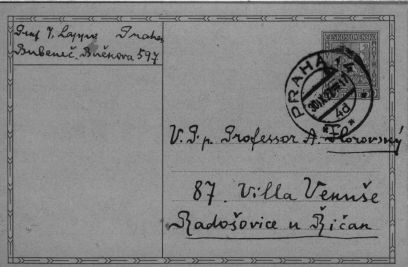 Prof J. Praha
Bubeneč, Bučkova 597
ČESKOSLOVENSKO
PRAHA 14
4d
V. P. p. Professor A. Florovský
87. Villa Venuše
Radošovice u Říčan